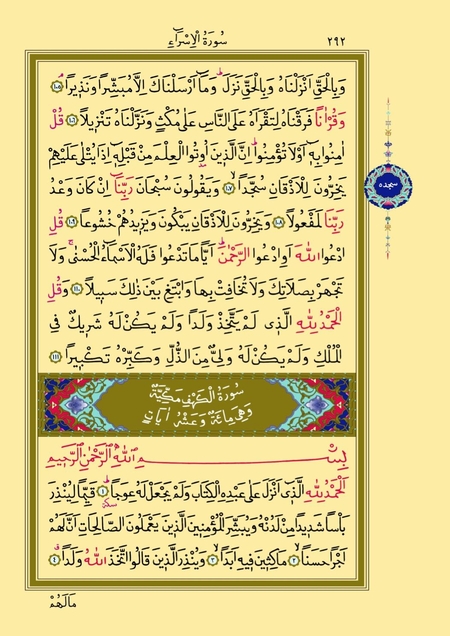 ٢٩٢ سُورَةُ الْاِسْرَاءِ
وَبِالْحَقِّ اَنْزَلْنَاهُ وَبِالْحَقِّ نَزَلَۜ وَمَٓا اَرْسَلْنَاكَ اِلَّا مُبَشِّرًا وَنَذٖيرًاۢ ﴿١٠٥﴾
وَقُرْاٰنًا فَرَقْنَاهُ لِتَقْرَاَهُ عَلَى النَّاسِ عَلٰى مُكْثٍ وَنَزَّلْنَاهُ تَنْزٖيلًا ﴿١٠٦﴾ قُلْ
اٰمِنُوا بِهٖٓ اَوْ لَا تُؤْمِنُواۜ اِنَّ الَّذٖينَ اُو۫تُوا الْعِلْمَ مِنْ قَبْلِهٖٓ اِذَا يُتْلٰى عَلَيْهِمْ
يَخِرُّونَ لِلْاَذْقَانِ سُجَّدًاۙ ﴿١٠٧﴾ وَيَقُولُونَ سُبْحَانَ رَبِّنَٓا اِنْ كَانَ وَعْدُ
رَبِّنَا لَمَفْعُولًا ﴿١٠٨﴾ وَيَخِرُّونَ لِلْاَذْقَانِ يَبْكُونَ وَيَزٖيدُهُمْ خُشُوعًا ﴿١٠٩﴾ قُلِ
ادْعُوا اللّٰهَ اَوِ ادْعُوا الرَّحْمٰنَۜ اَيًّا مَا تَدْعُوا فَلَهُ الْاَسْمَٓاءُ الْحُسْنٰىۚ وَلَا
تَجْهَرْ بِصَلَاتِكَ وَلَا تُخَافِتْ بِهَا وَابْتَغِ بَيْنَ ذٰلِكَ سَبٖيلًا ﴿١١٠﴾ وَقُلِ
الْحَمْدُ لِلّٰهِ الَّذٖى لَمْ يَتَّخِذْ وَلَدًا وَلَمْ يَكُنْ لَهُ شَرٖيكٌ فِى
الْمُلْكِ وَلَمْ يَكُنْ لَهُ وَلِىٌّ مِنَ الذُّلِّ وَكَبِّرْهُ تَكْبٖيرًا ﴿١١١﴾
سجده
سُورَةُ الْكَهْفِ مَكِّيَّةٌ
وَهِىَ مِائَةٌ وَعَشْرُ اٰيَاتٍ
بِسْمِ اللّٰهِ الرَّحْمٰنِ الرَّحٖيمِ
اَلْحَمْدُ لِلّٰهِ الَّذٖٓى اَنْزَلَ عَلٰى عَبْدِهِ الْكِتَابَ وَلَمْ يَجْعَلْ لَهُ عِوَجًاۜ ﴿١﴾ قَيِّمًا لِيُنْذِرَ
بَأْسًا شَدٖيدًا مِنْ لَدُنْهُ وَيُبَشِّرَ الْمُؤْمِنٖينَ الَّذٖينَ يَعْمَلُونَ الصَّالِحَاتِ اَنَّ لَهُمْ
اَجْرًا حَسَنًاۙ ﴿٢﴾ مَاكِثٖينَ فٖيهِ اَبَدًاۙ ﴿٣﴾ وَيُنْذِرَ الَّذٖينَ قَالُوا اتَّخَذَ اللّٰهُ وَلَدًا ﴿٤﴾
مَالَهُمْ